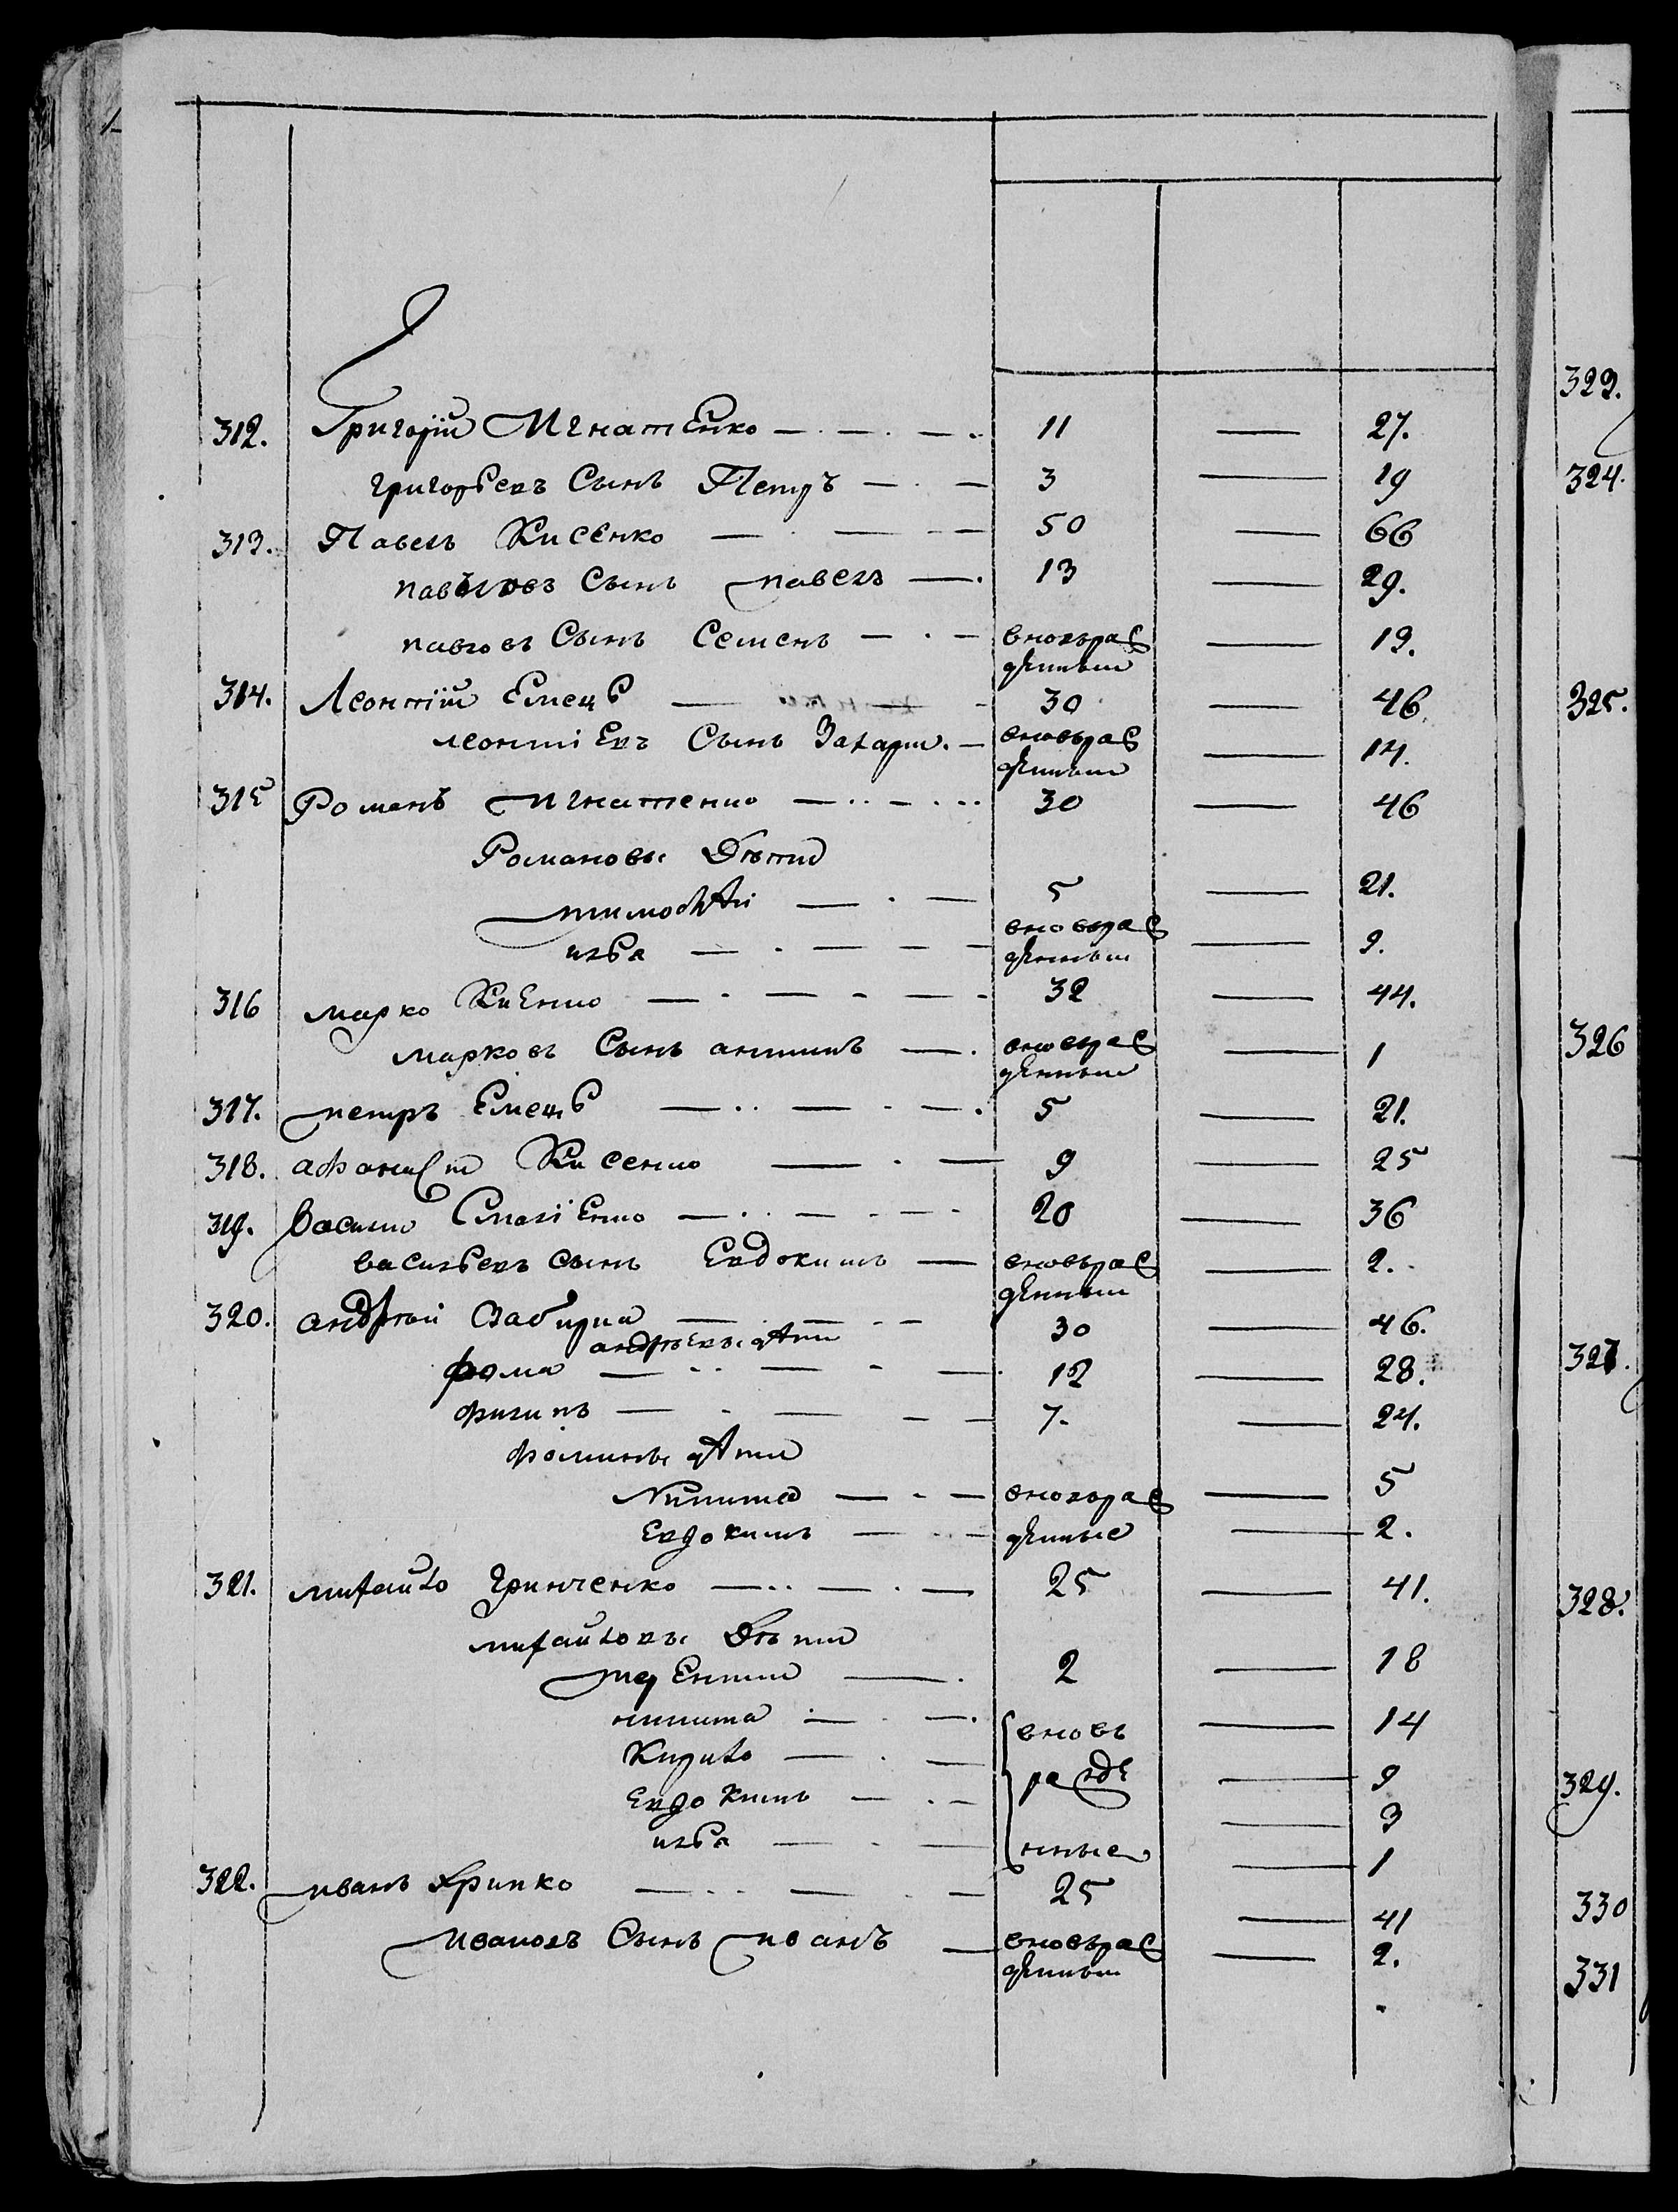 312. Григорій Игнатенко — 11 — 27.
Григорьевъ Сынъ Петръ — 3 — 19
313. Павелъ Кисенко — 50 — 66
павловъ Сынъ павелъ — 13 — 29.
павловъ Сынъ Семенъ — вновьрож
денный — 13.
314. Леонтій Емецъ — 30 — 46.
леонтіевъ Сынъ Захарій — вновьрож
денный — 14.
315 Романъ игнатенко — 30 — 46
Романовы Дѣти
тимофѣй — 5 — 21.
илья — вновьрож
денный — 9.
316 марко Киенко — 32 — 44.
марковъ Сынъ антипъ — вновьрож
денный — 1
317. петръ Емецъ — 5 — 21.
318. афанасій Кисенко — 9 — 25
319. василий — 20 — 36
васильевъ сынъ Евдокимъ — вновьрож
денный — 2.
320. андрѣй — 30 — 46.
андрѣевы дѣти
фома — 12 — 28.
филипъ — 7. — 24.
фомины дѣти
Никита — вновьрож — 5
Евдокимъ — денные — 2.
321. михайло Гринченко — 25 — 41.
михайловы Дѣти
терентий — 2 — 18
никита — вновь — 14
Кирило — рожде — 9
Евдокимъ — 3
илья — нные — 1
322. иванъ Хрипко — 25 — 41
Ивановъ Сынъ иванъ — вновьрож
денный — 2.
323.
324.
325.
326
327.
328.
329.
330
331